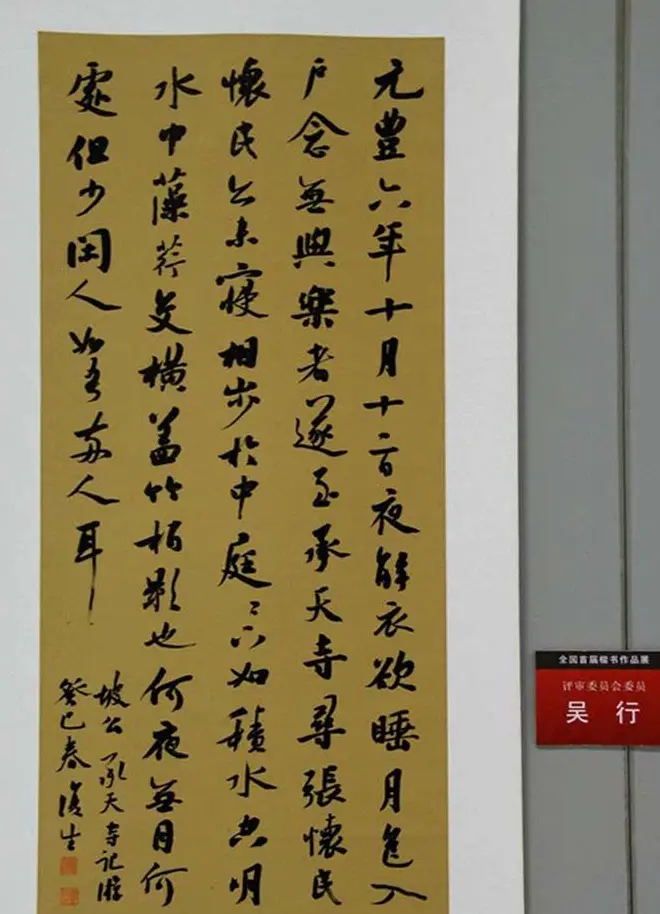 元豐六年十月十二日夜解衣欲睡月色入
戶念無與樂者遂至承天寺尋張懷民
懷民亦未寢相步於中庭〻下如積水空明
水中藻荇交橫蓋竹栢影也何夜無月何
處但少閑人如吾兩人耳
坡公承天寺記游
癸巳春復生
全国首届楷书作品展
评审委员会委员
吴 行